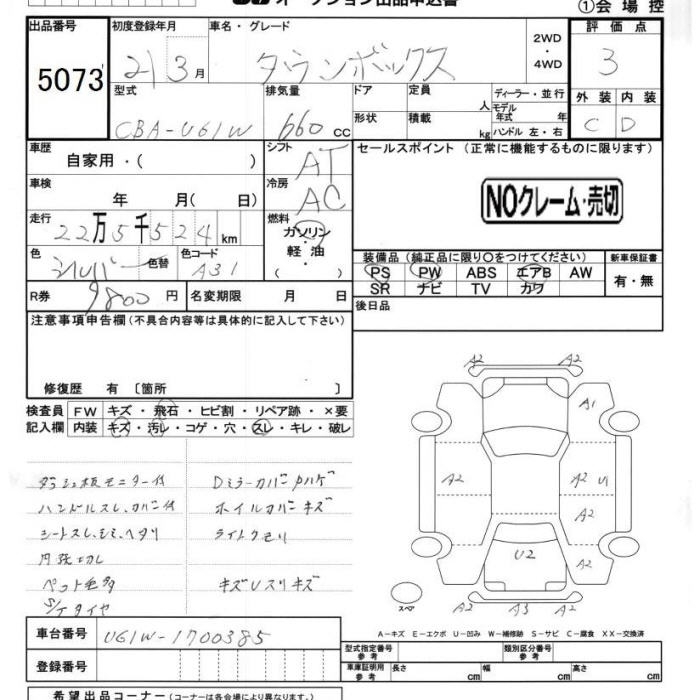 オークション出品申込書
①会場控
出品番号 初度登録年月 車名・グレード 2WD ・ 4WD 評価点
5073 21 3月 タウンボックス 3
型式 排気量 ドア 定員 人 ディーラー・並行 外装 内装
モデル年式 年
CBA-U61W 660 cc 形状 積載 kg ハンドル 左・右 C D
車歴 シフト セールスポイント (正常に機能するものに限ります)
自家用・( ) AT
車検 冷房
年 月( 日) AC NOクレーム・売切
走行 燃料
22万5千524km ガソリン・軽油
色 色コード 装備品 (純正品に限り○をつけてください) 新車保証書
シルバー 色替 A31 PS PW ABS エアB AW 有・無
SR ナビ TV カワ
R券 9800円 名変期限 月 日 後日品
注意事項申告欄(不具合内容等は具体的に記入して下さい)
修復歴 有 〔箇所 〕
検査員 FW キズ・飛石・ヒビ割・リペア跡・×要
記入欄 内装 キズ・汚レ・コゲ・穴・スレ・キレ・破レ
A2 A2
A1
A2 A2 U1
A2
U2 A2
スペア A2 A3 A2
ダッシュ板モニター付 Dミラーカバーハゲ
ハンドルスレ、カバー付 ホイルカバーキズ
シートスレ、シミ、ヘタリ ライトクモリ
内張
ペット毛多 キズUスリキズ
S/Tタイヤ
A-キズ E-エクボ U-凹み W-補修跡 S-サビ C-腐食 XX-交換済
車台番号 U61W-1700385
型式指定番号 参考 類別区分番号 参考
登録番号 車庫証明用 参考 長さ cm 幅 cm 高さ cm
希望出品コーナー (コーナーは各会場により異なります)